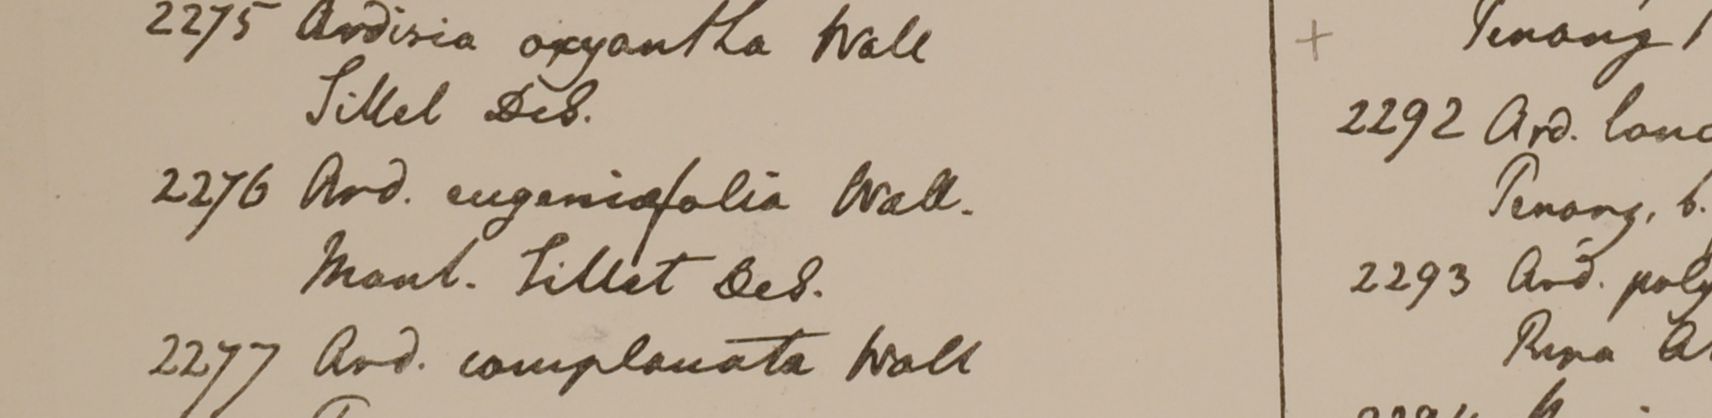 2275 Ardisia oxyantha Wall
Sillet DeS.
2276 Ard. eugeniæfolia Wall.
Mont. Sillet DeS.
2277 Ard. complanata Wall
Penang
2292 Ard. lanc
Penang, b.
2293 Ard. poly